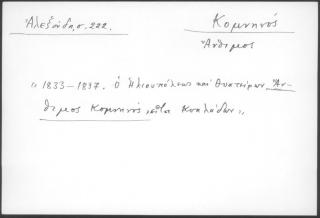 Ἀλεξούδη, σ. 222.
Κομνηνός
Ἄνθιμος
"1833–1837. Ὁ Ἡλιουπόλεως καί Θυατείρων Ἄν-
θιμος Κομνηνός, εἶτα Κυκλάδων"